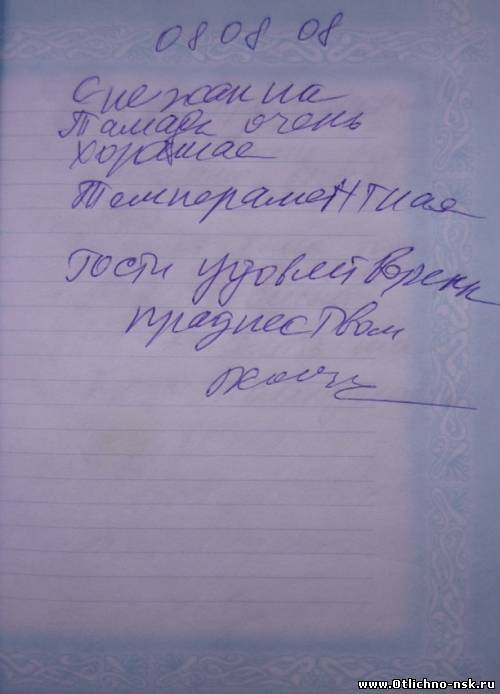 08 08 08
Снежанна
Тамада очень
хорошае
Темпераментная
Гости удовлетворены
праднеством
www.Otlichno-nsk.ru